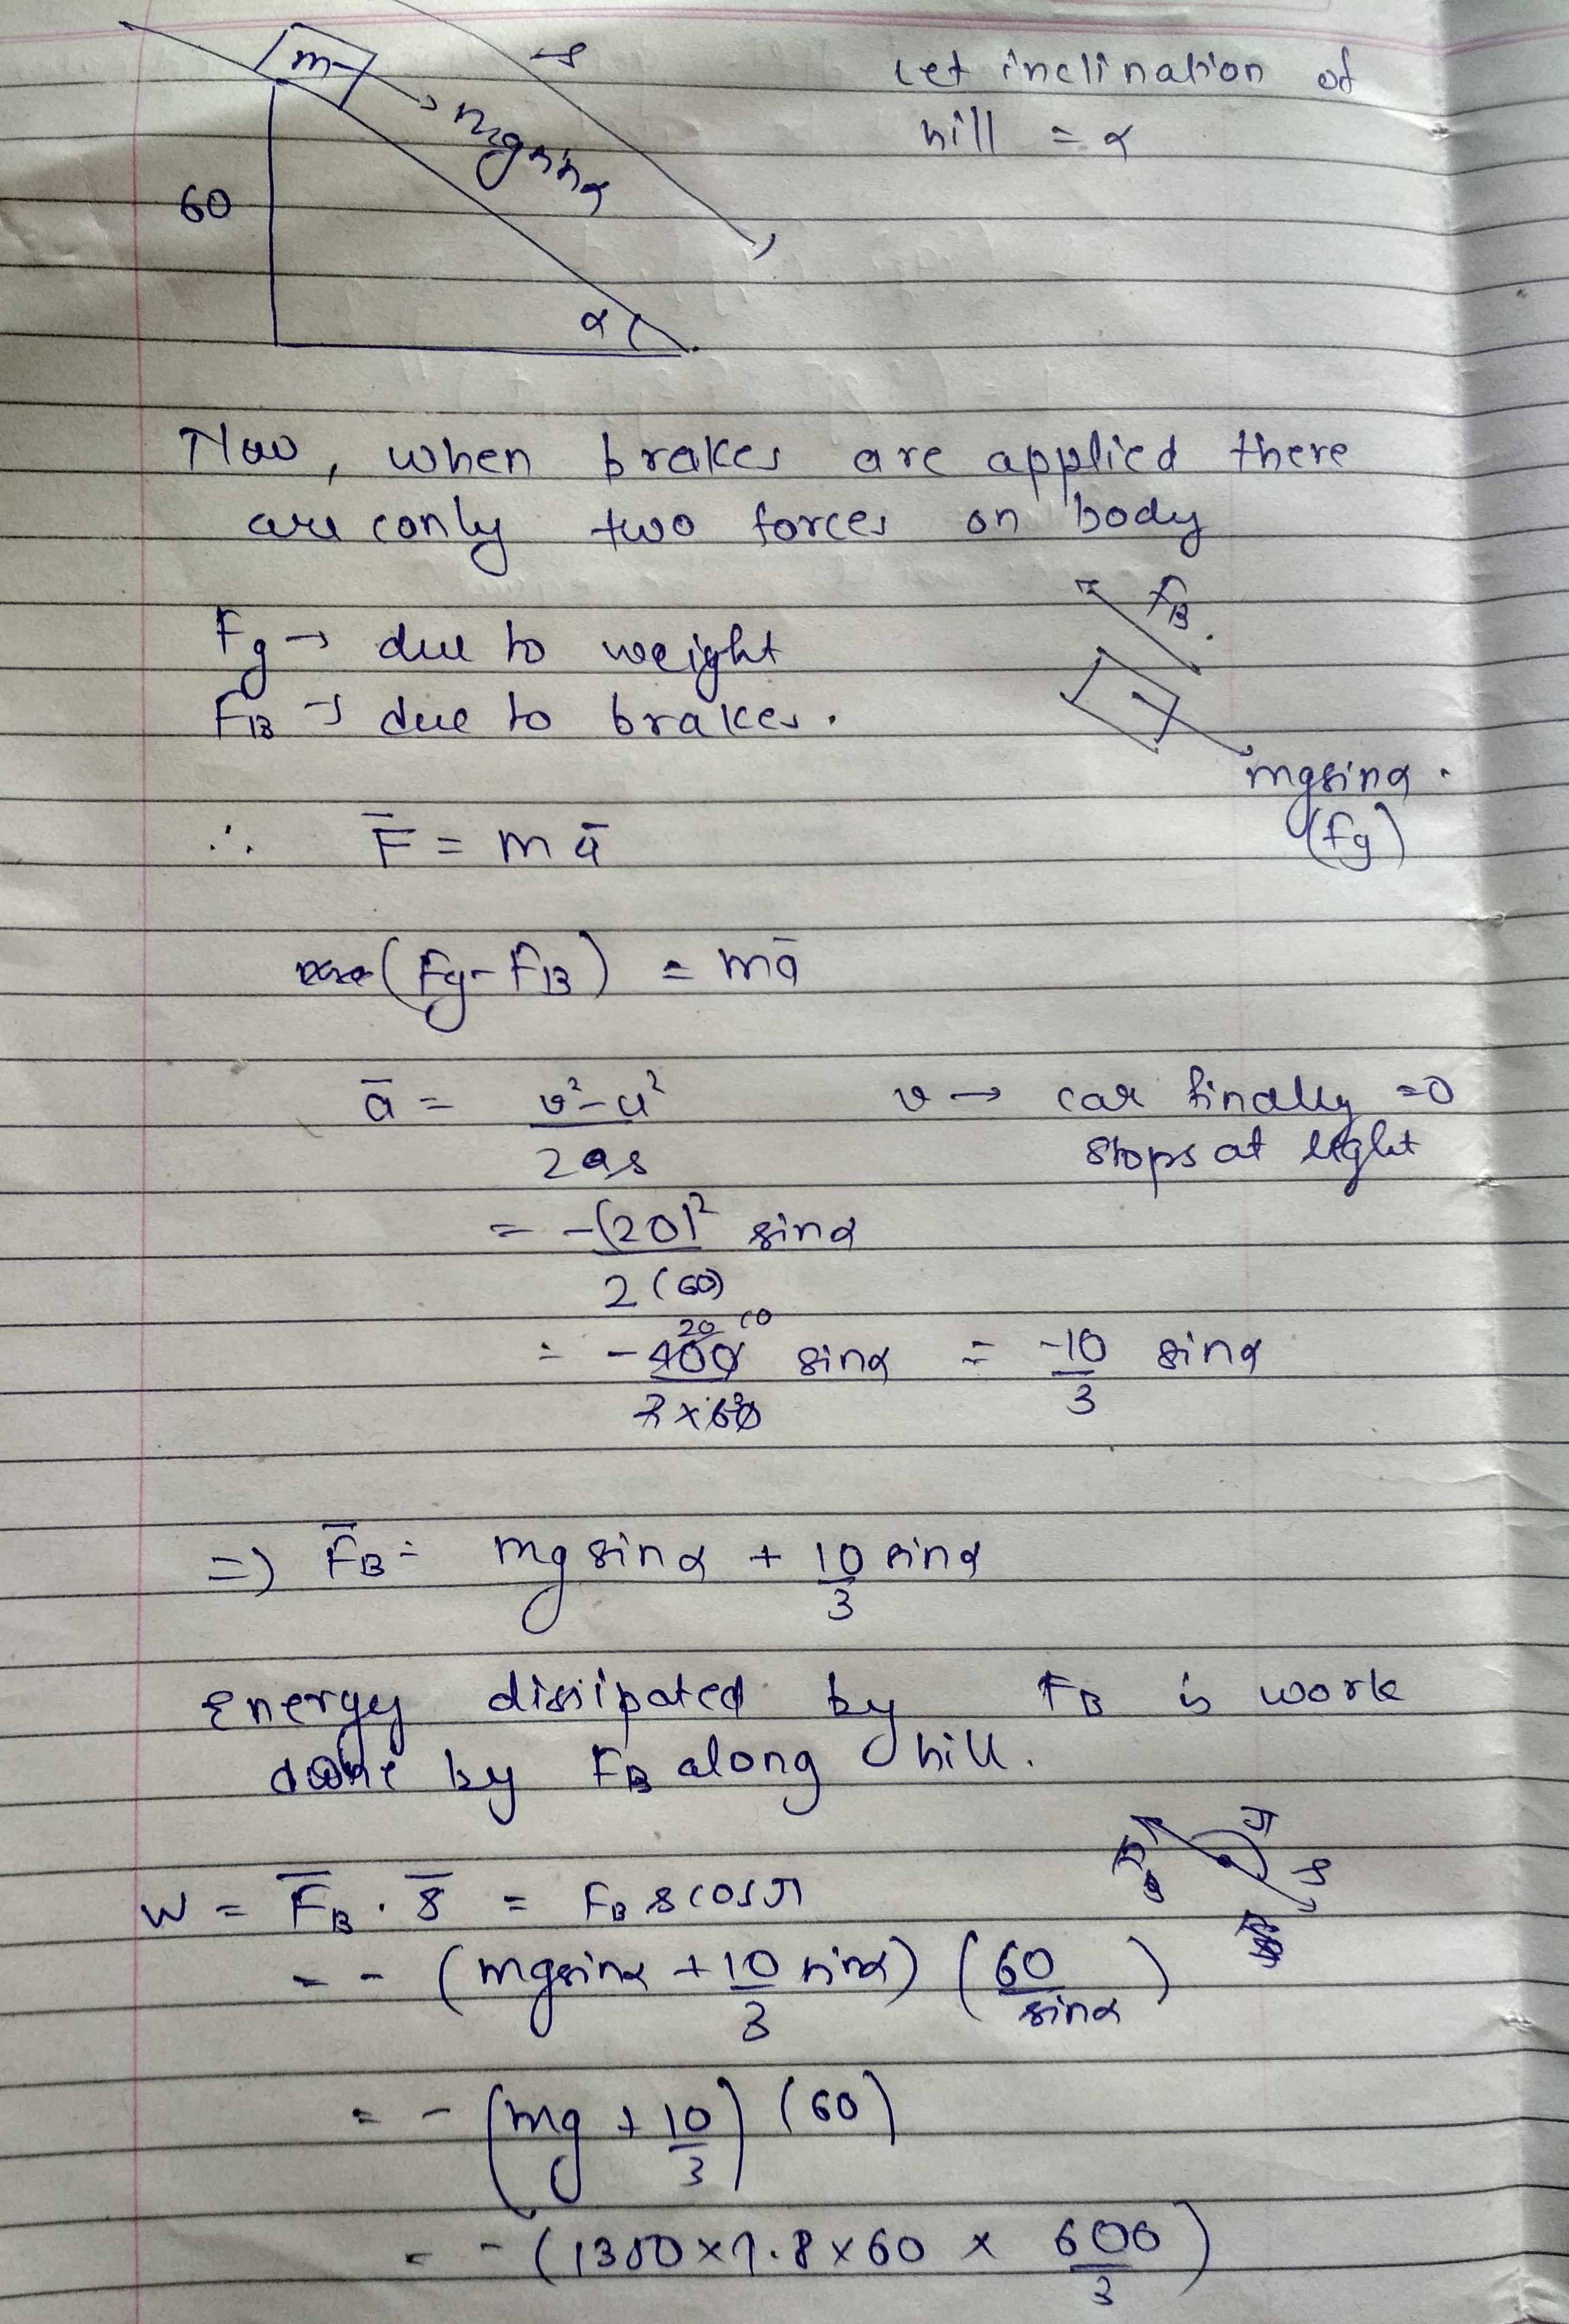 m
s
mgsinα
60
α
Let inclination of
hill = α
Now, when brakes are applied there
are only two forces on body
Fg → due to weight
FB → due to brakes.
FB
mgsinα.
(Fg)
∴ F̅ = m a̅
(Fg - FB) = ma̅
a̅ = v² - u² / 2as
v → car finally = 0
stops at light
= -(20)² / 2(60) sinα
= -400 / 2×60 sinα = -10/3 sinα
20 10
⇒ F̅B = mgsinα + 10/3 sinα
Energy dissipated by FB is work
done by FB along hill.
π
s
W = F̅B . s̅ = FB s cosπ
= - (mgsinα + 10/3 sinα) (60/sinα)
= - (mg + 10/3) (60)
= - (1300×9.8×60 × 600/3)